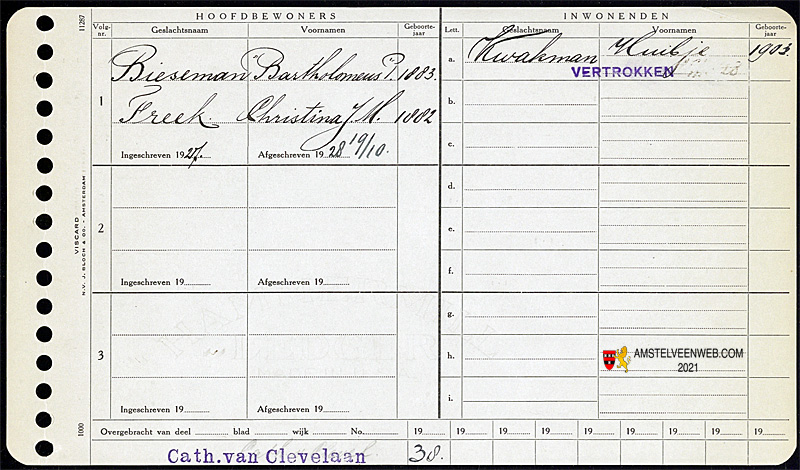 HOOFDBEWONERS
INWONENDEN
Volg-nr.
Geslachtsnaam
Voornamen
Geboorte-jaar
Lett.
Geslachtsnaam
Voornamen
Geboorte-jaar
1
Bieseman Bartholomeus P. 1883.
Freek. Christina J.M. 1882
Ingeschreven 1927.
Afgeschreven 1928 19/10.
a. Kwakman Huibje 1903.
VERTROKKEN
b.
c.
2
Ingeschreven 19
Afgeschreven 19
d.
e.
f.
3
Ingeschreven 19
Afgeschreven 19
g.
h.
i.
AMSTELVEENWEB.COM
2021
Overgebracht van deel blad wijk No. 19 19 19 19 19 19 19 19 19
Cath.van Clevelaan 38.
11287
VISCARD
N.V. J. BLOCH & CO. - AMSTERDAM
1000